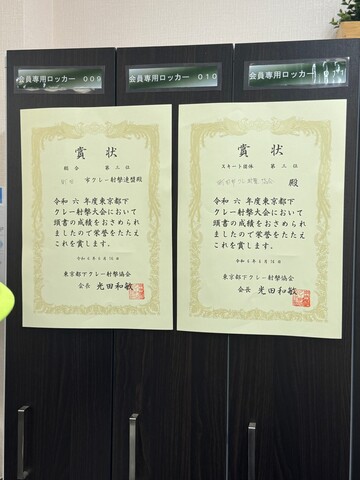 会員専用ロッカー 009
会員専用ロッカー 010
会員専用ロッカー
賞状
総合 第三位
市クレー射撃連盟殿
令和六年度東京都下
クレー射撃大会において
頭書の成績をおさめられ
ましたので栄誉をたたえ
これを賞します。
東京都下クレー射撃協会
会長 光田和敏
賞状
スキート団体 第三位
殿
令和六年度東京都下
クレー射撃大会において
頭書の成績をおさめられ
ましたので栄誉をたたえ
これを賞します。
東京都下クレー射撃協会
会長 光田和敏